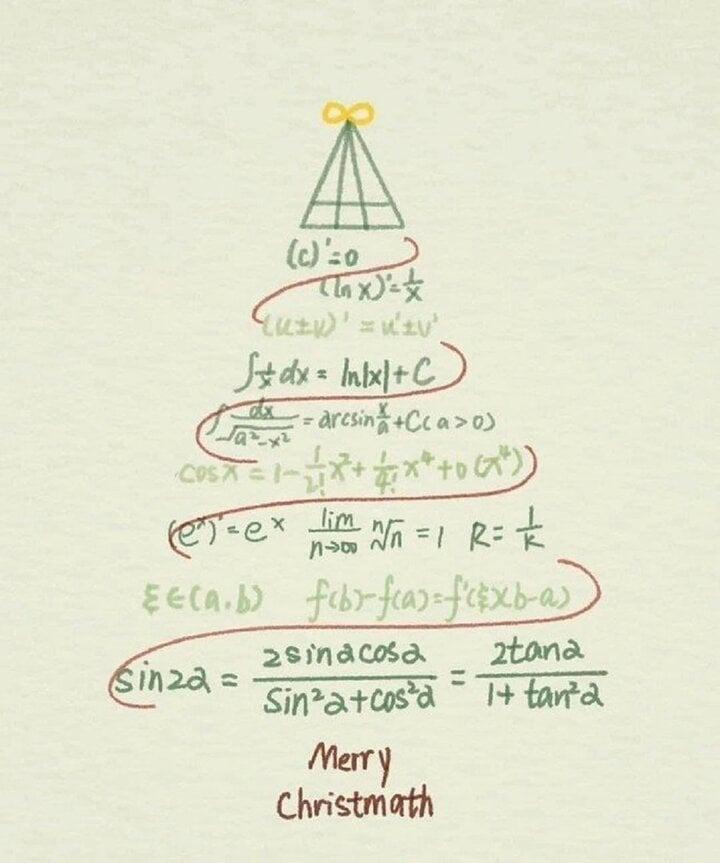 (c)'=0
(ln x)'=1/x
(u±v)'=u'±v'
∫1/x dx = ln|x|+C
∫dx/√(a²-x²) = arcsin x/a +C(a>0)
cosx = 1-1/2! x²+1/4! x⁴+o(x⁴)
(eˣ)'=eˣ lim n→∞ ⁿ√n =1 R=1/k
ξ∈(a.b) f(b)-f(a)=f'(ξ)(b-a)
sin2α = 2sinαcosα/sin²α+cos²α = 2tanα/1+tan²α
Merry
Christmath